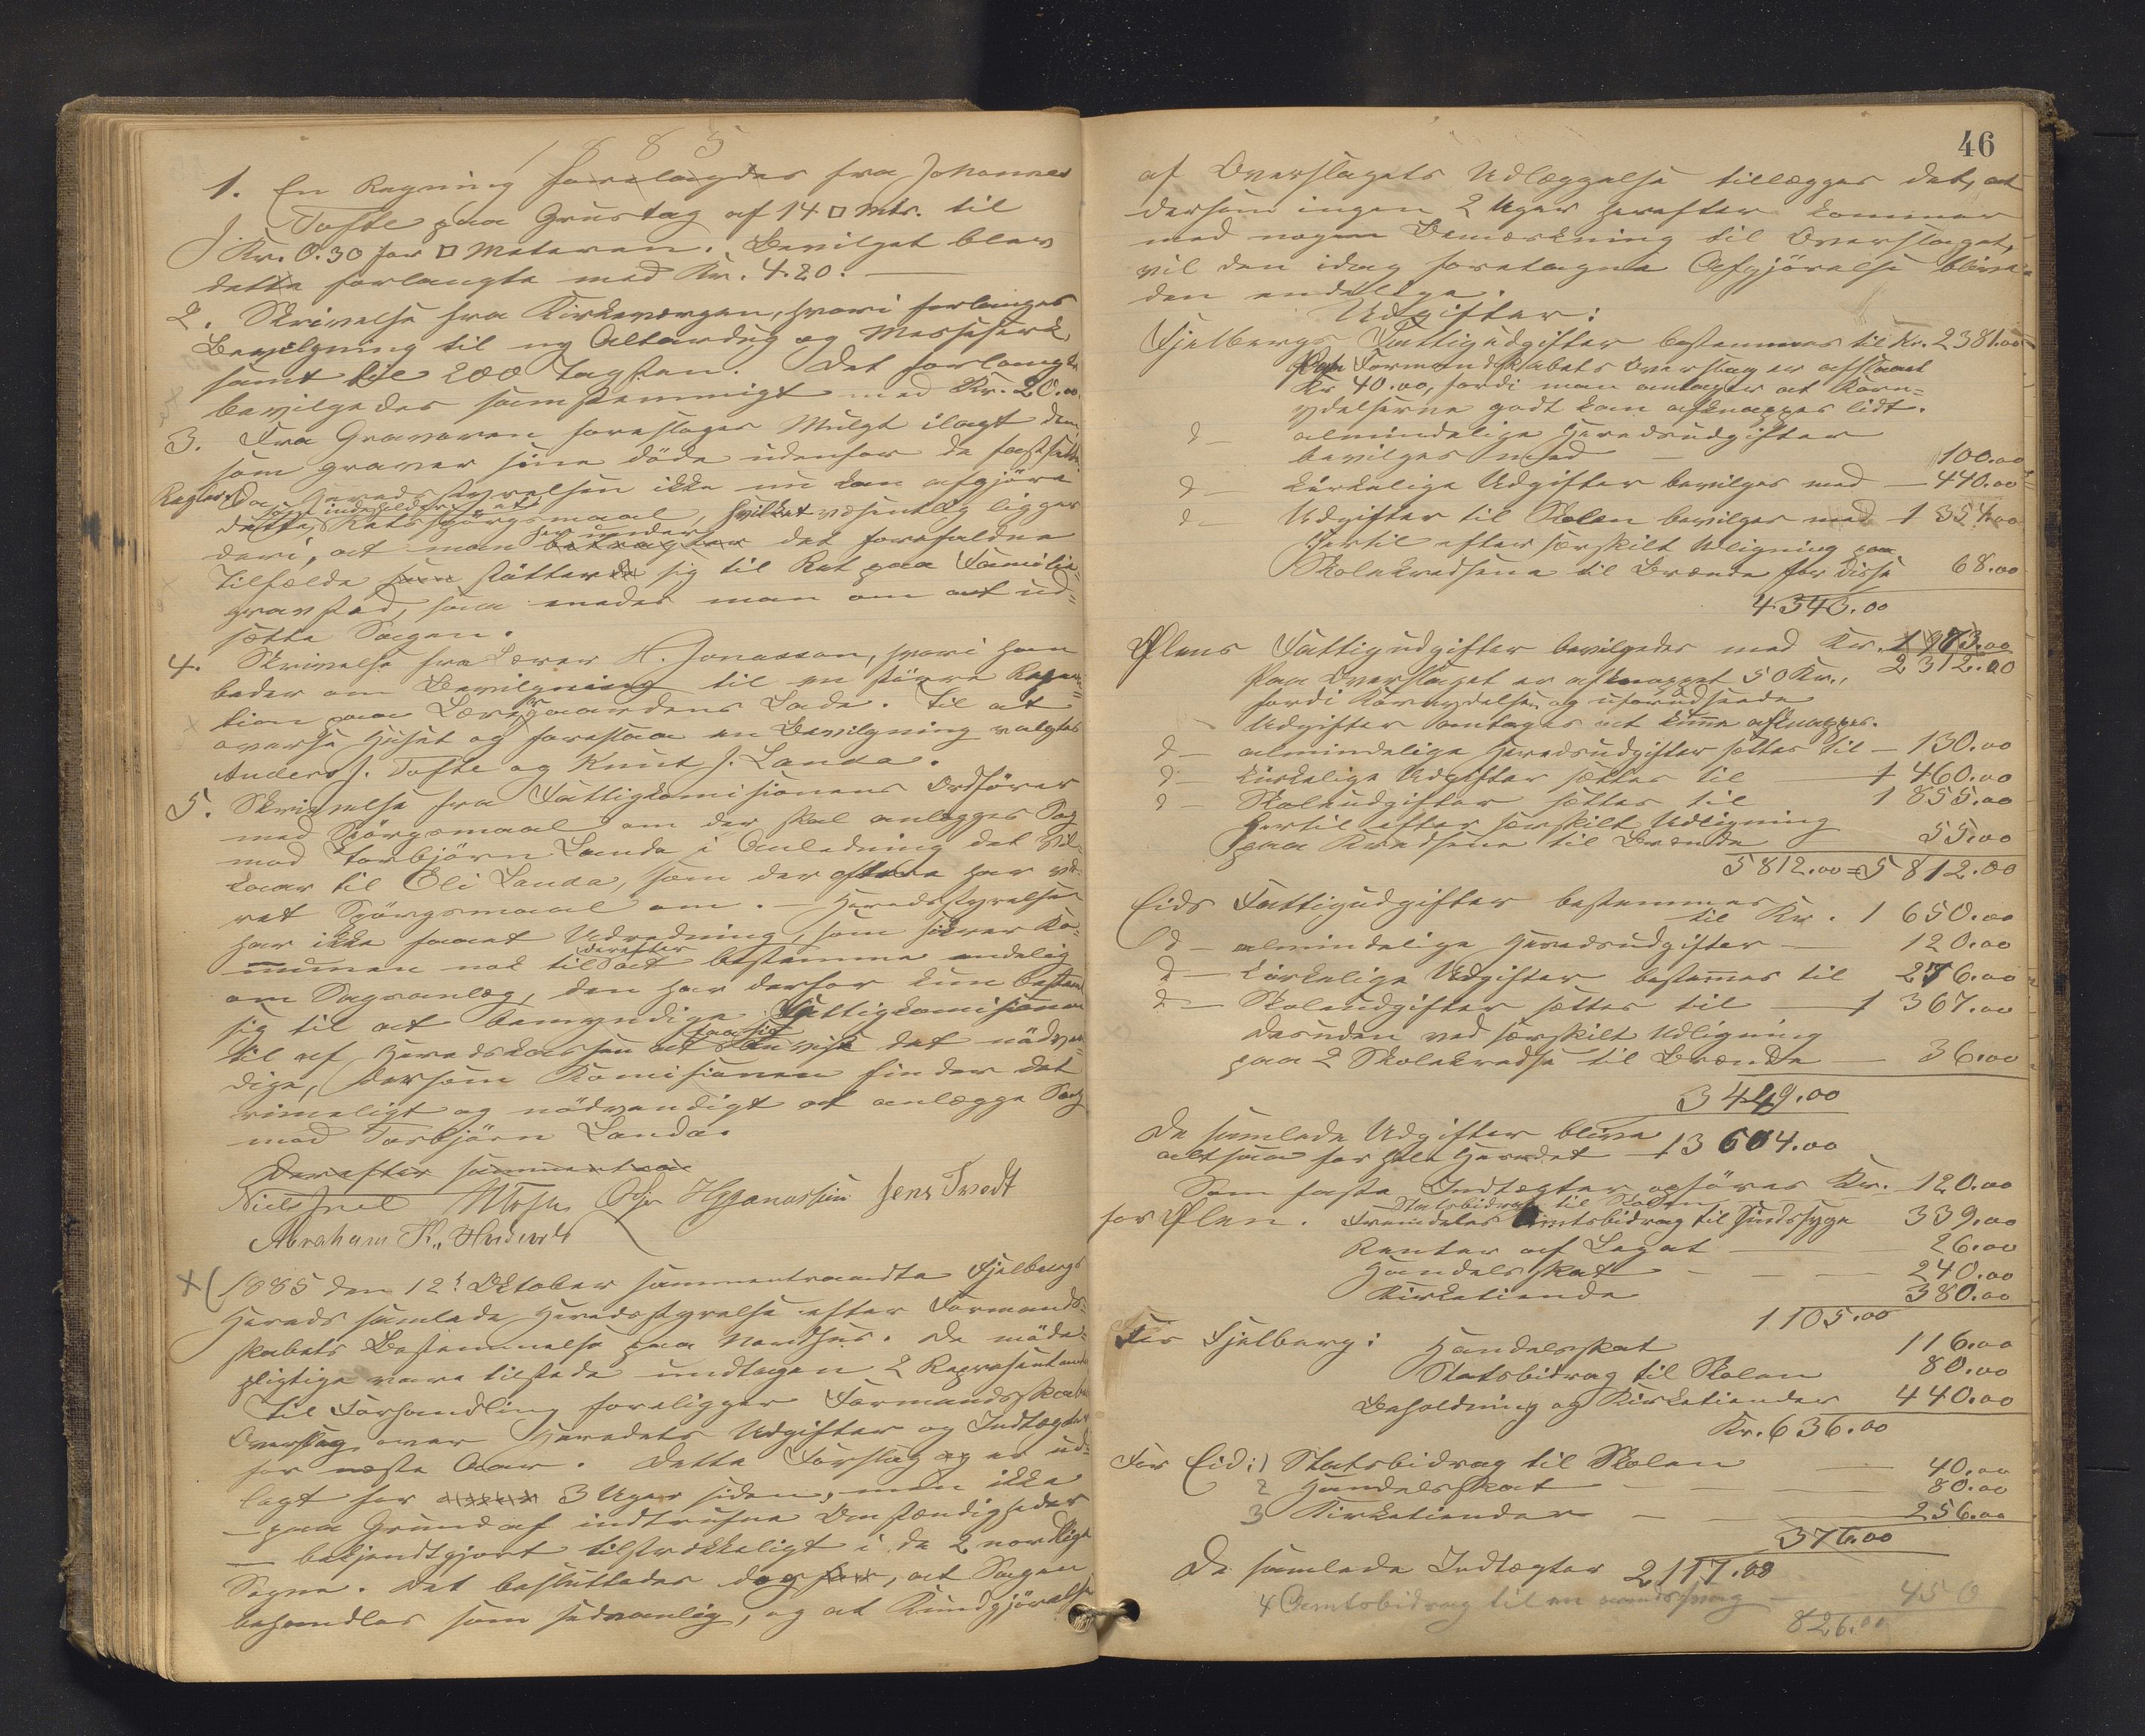 1885
1. En Regning forelagdes fra Johannes
J. Tofte paa Grustag af 14 □ Mtr. til
Kr. 0.30 per □ Meteren. Bevilget blev
dette forlangte med Kr. 4.20. —
2. Skrivelse fra Kirkeværgen, hvori forlanges
Bevilgning til ny Alterdug og Messeserk
samt til 200 Tagsten. Det forlangte
bevilgedes samstemmigt med Kr. 20.00
3. Fra Graveren foreslaaes Mulgt ilagt dem,
som graver sine döde udenfor de fastsatte
Regler. Da Heredsstyrelsen ikke nu kan afgjöre
som indeholder et
dette Retsspörgsmaal, hvilket væsentlig ligger
der under
deri, at man betragter det forefaldne
Tilfælde som støtter sig til Ret paa Familie-
gravsted, saa enedes man om at ud=
sætte Sagen.
4. Skrivelse fra Lærer H. Jonassen, hvori han
beder om Bevilgning til en større Repara=
tion paa Lærergaardens Lade. Til at
overse Huset og foreslaa en Bevilgning valgtes
Anders J. Tofte og Knut J. Landa.
5. Skrivelse fra Fattigkomisionens Ordförer
med Spörgsmaal om der skal anlægges Sag
mod Torbjörn Landa i Anledning det Vil-
kaar til Eli Landa, som der oftere har væ-
ret Spörgsmaal om. — Heredsstyrelsen
har ikke faaet Udredning, som sikrer Ko=
derefter
munen nok til at bestemme endelig
om Sagsanlæg, den har derfor kun bestemt
sig til at bemyndige Fattigkomisionen
til af Heredskassen at anvise det nödven
dige, dersom Komisionen finder det
rimeligt og nödvendigt at anlægge Sag
mod Torbjörn Landa.
Derefter
Niels Juel H Jonassen Jens Tvedt
Abraham K.
× 1885 den 12te Oktober sammentraadte Fjelbergs
Hereds samlede Heredsstyrelse efter Formand=
skabets Bestemmelse paa Nordhus. De möde=
pligtige vare tilstede undtagen 2 Repræsentanter
Til Forhandling foreligger Formandsskabets
Overslag over Heredets Udgifter og Indtægter
for næste Aar. Dette Forslag er ud=
lagt for 3 Uger siden, men ikke
— paa Grund af indtrufne Omstændigheder
— bekjendtgjort tilstrækkeligt i de 2 nordlige
Sogne. Det besluttedes dog, at Sagen
behandles som sedvanlig, og at Kundgjörelse
46
af Overslagets Udlæggelse tillægges det, at
dersom ingen 2 Uger herefter kommer
med nogen Bemærkning til Overslaget,
vil den idag foretagne Afgjörelse blive
den endelige.
Udgifter:
Fjelbergs Fattigudgifter bestemmes til Kr. 2381.00
Paa Formandskabets Overslag er afslaaet
Kr 40.00, fordi man antager at Korn=
ydelserne godt kan afknappes lidt.
d — almindelige Heredsudgifter
bevilges med — 100.00
d — kirkelige Udgifter bevilges med — 440.00
d — Udgifter til Skolen bevilges med — 1 354.00
Hertil efter særskilt Udligning paa
Skolekredsene til Brænde for disse 68.00
4343.00
Ølens Fattigudgifter bevilgedes med Kr. 1973.00
2312.00
Paa Overslaget er afknappet 50 Kr.,
fordi Kornydelsen og uforudseede
Udgifter antages at kunne afknappes.
d — almindelige Heredsudgifter sættes til — 130.00
d — kirkelige Udgifter sættes til 1 460.00
d — Skoleudgifter sættes til 1 855.00
Hertil efter særskilt Udligning
paa Kredsene til Brænde 55.00
5812.00=5812.00
Eids Fattigudgifter bestemmes
til Kr. 1 650.00
d — almindelige Heredsudgifter — 120.00
d — kirkelige Udgifter bestemmes til 276.00
d — Skoleudgifter sættes til — 1 367.00
desuden ved særskilt Udligning
paa 2 Skolekredse til Brænde — 36.00
3449.00
De samlede Udgifter blive
altsaa for hele Heredet 13604.00
Som faste Indtægter opföres Kr. 120.00
Statsbidrag til Skolen
for Ølen. Fremdeles Amtsbidrag til Sindssyge 339.00
Renter af Legat — 26.00
Handelsskat — 240.00
Kirketiende 380.00
1105.00
For Fjelberg: Handelsskat 116.00
Statsbidrag til Skolen 80.00
Beholdning og Kirketiender 440.00
Kr. 636.00
For Eid: 1 Statsbidrag til Skolen — 40.00
2 Handelsskat — 80.00
3 Kirketiender — 256.00
376.00
De samlede Indtægter 2117.00
4 Amtsbidrag til en — 450
826.00